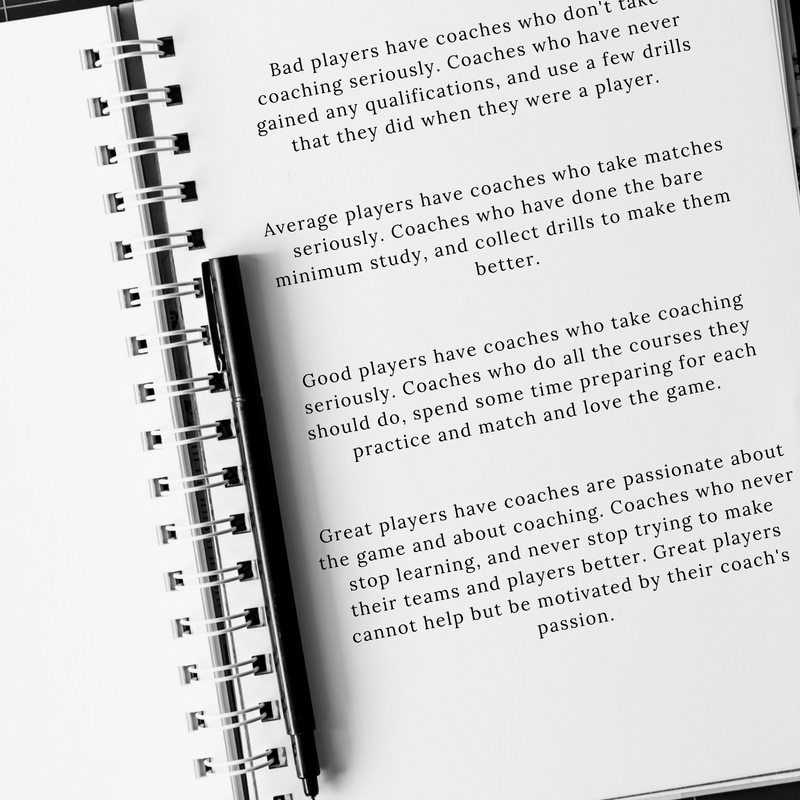 Bad players have coaches who don't take
coaching seriously. Coaches who have never
gained any qualifications, and use a few drills
that they did when they were a player.
Average players have coaches who take matches
seriously. Coaches who have done the bare
minimum study, and collect drills to make them
better.
Good players have coaches who take coaching
seriously. Coaches who do all the courses they
should do, spend some time preparing for each
practice and match and love the game.
Great players have coaches are passionate about
the game and about coaching. Coaches who never
stop learning, and never stop trying to make
their teams and players better. Great players
cannot help but be motivated by their coach's
passion.